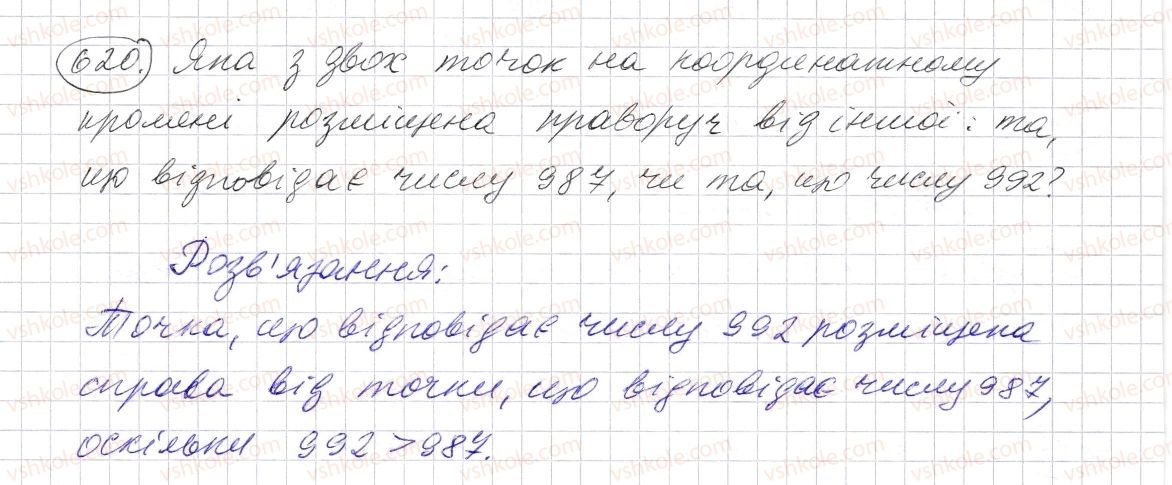 620. Яка з двох точок на координатному
промені розміщена праворуч від іншої: та,
що відповідає числу 987, чи та, що числу 992?
Розв'язання:
Точка, що відповідає числу 992 розміщена
справа від точки, що відповідає числу 987,
оскільки 992 > 987.
vshkole.com